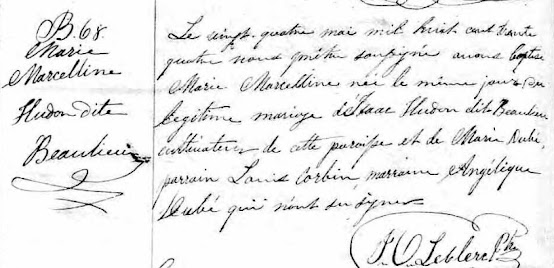 B. 68.
Marie
Marcelline
Hudon dite
Beaulieu
Le vingt-quatre mai mil huit cent trente
quatre nous prêtre soussigné avons baptisé
Marie Marcelline née le même jour du
légitime mariage d'Isaac Hudon dit Beaulieu
cultivateur de cette paroisse et de Marie Dubé,
parrain Louis Corbin, marraine Angélique
Dubé qui n'ont su signer
Leblerc Ptre